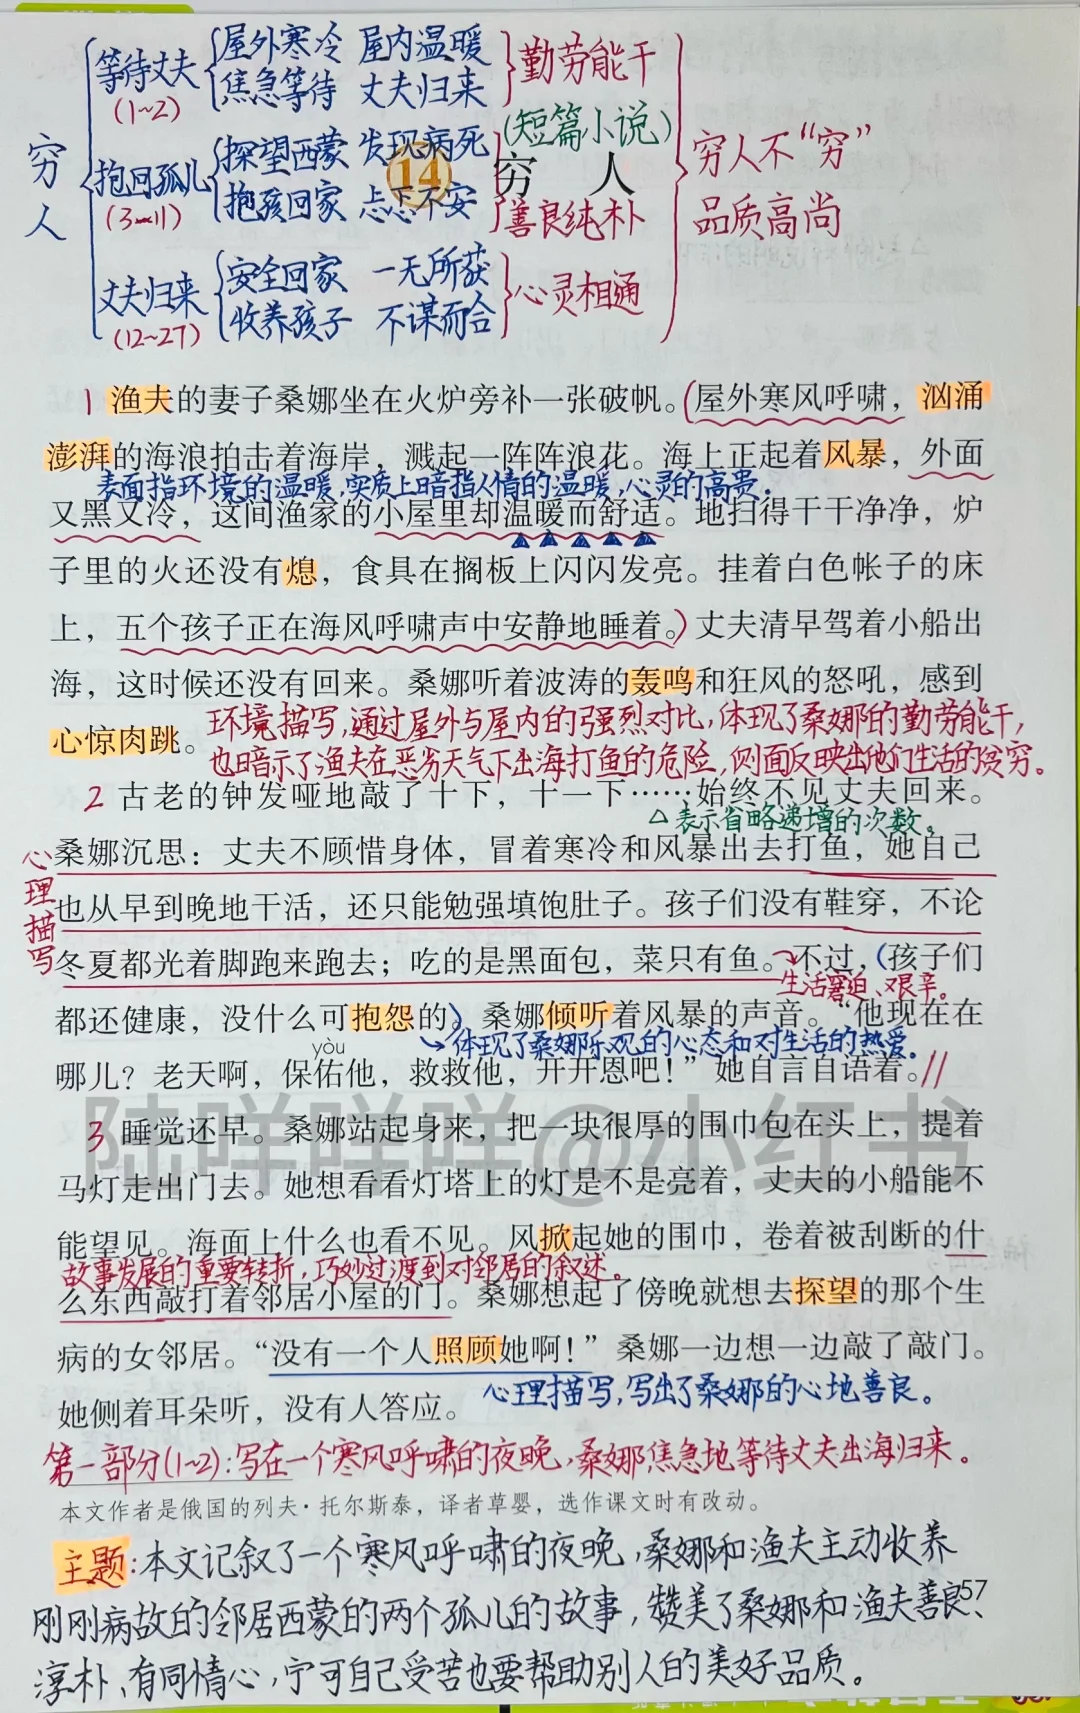 穷人
等待丈夫
(1~2)
屋外寒冷 屋内温暖
焦急等待 丈夫归来
勤劳能干
抱回孤儿
(3~11)
探望西蒙 发现病死
抱孩回家 忐忑不安
善良纯朴
丈夫归来
(12~27)
安全回家 一无所获
收养孩子 不谋而合
心灵相通
穷人不“穷”
品质高尚
(短篇小说)
14 穷人
1 渔夫的妻子桑娜坐在火炉旁补一张破帆。(屋外寒风呼啸，汹涌
澎湃的海浪拍击着海岸，溅起一阵阵浪花。海上正起着风暴，外面
表面指环境的温暖,实质上暗指人情的温暖,心灵的高贵。
又黑又冷，这间渔家的小屋里却温暖而舒适。地扫得干干净净，炉
子里的火还没有熄，食具在搁板上闪闪发亮。挂着白色帐子的床
上，五个孩子正在海风呼啸声中安静地睡着。)丈夫清早驾着小船出
海，这时候还没有回来。桑娜听着波涛的轰鸣和狂风的怒吼，感到
心惊肉跳。
环境描写,通过屋外与屋内的强烈对比,体现了桑娜的勤劳能干,
也暗示了渔夫在恶劣天气下出海打鱼的危险,侧面反映出他们生活的贫穷。
2 古老的钟发哑地敲了十下，十一下……始终不见丈夫回来。
△表示省略递增的次数。
桑娜沉思：丈夫不顾惜身体，冒着寒冷和风暴出去打鱼，她自己
心理描写
也从早到晚地干活，还只能勉强填饱肚子。孩子们没有鞋穿，不论
冬夏都光着脚跑来跑去；吃的是黑面包，菜只有鱼。不过，(孩子们
生活窘迫、艰辛。
都还健康，没什么可抱怨的。)桑娜倾听着风暴的声音。“他现在在
体现了桑娜乐观的心态和对生活的热爱。
yòu
哪儿？老天啊，保佑他，救救他，开开恩吧！”她自言自语着。//
3 睡觉还早。桑娜站起身来，把一块很厚的围巾包在头上，提着
陆咩咩咩@小红书
马灯走出门去。她想看看灯塔上的灯是不是亮着，丈夫的小船能不
能望见。海面上什么也看不见。风掀起她的围巾，卷着被刮断的什
故事发展的重要转折,巧妙过渡到对邻居的叙述。
么东西敲打着邻居小屋的门。桑娜想起了傍晚就想去探望的那个生
病的女邻居。“没有一个人照顾她啊！”桑娜一边想一边敲了敲门。
心理描写,写出了桑娜的心地善良。
她侧着耳朵听，没有人答应。
第一部分(1~2):写在一个寒风呼啸的夜晚,桑娜焦急地等待丈夫出海归来。
本文作者是俄国的列夫·托尔斯泰，译者草婴，选作课文时有改动。
主题:本文记叙了一个寒风呼啸的夜晚,桑娜和渔夫主动收养
刚刚病故的邻居西蒙的两个孤儿的故事,赞美了桑娜和渔夫善良、
57
淳朴、有同情心,宁可自己受苦也要帮助别人的美好品质。